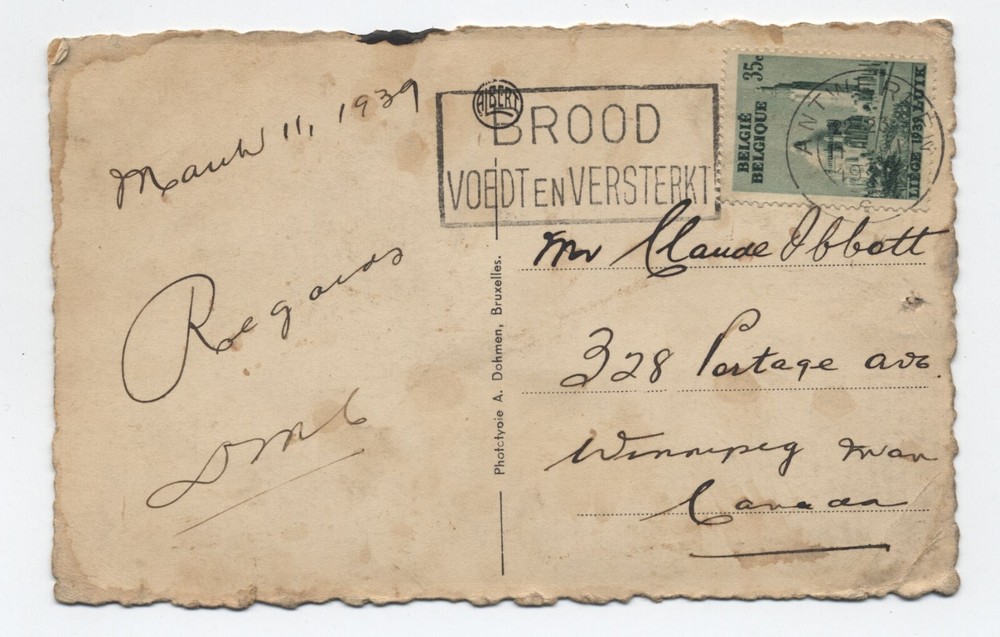 March 11, 1939
Regards
DMC
ALBERT
BROOD
VOEDT EN VERSTERKT
35c
BELGIË
BELGIQUE
LIEGE 1939 LUIK
ANTWERPEN
Phototypie A. Dohmen, Bruxelles.
Mr Claude Abbott
328 Portage Ave.
Winnipeg Man
Canada